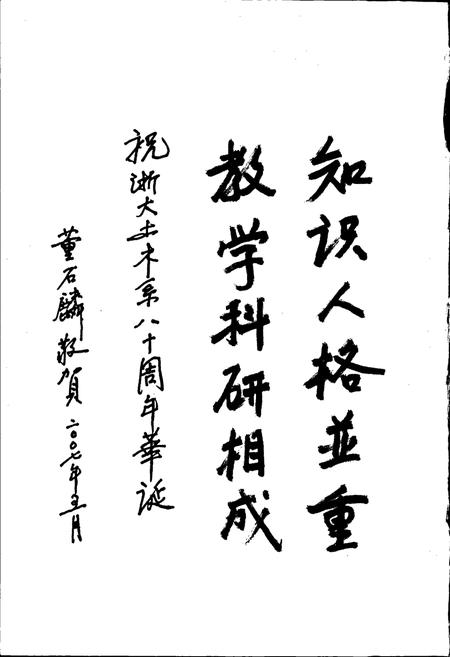 知识人格並重
教学科研相成
祝浙大土木系八十周年華诞
董石麟敬賀二〇〇七年五月